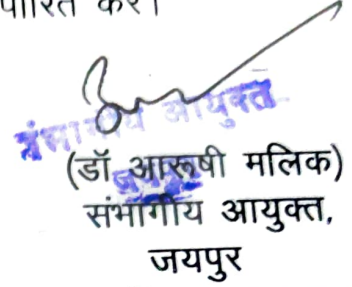 पारित करें।
संभागीय आयुक्त
जयपुर
(डॉ आरूषी मलिक)
संभागीय आयुक्त,
जयपुर